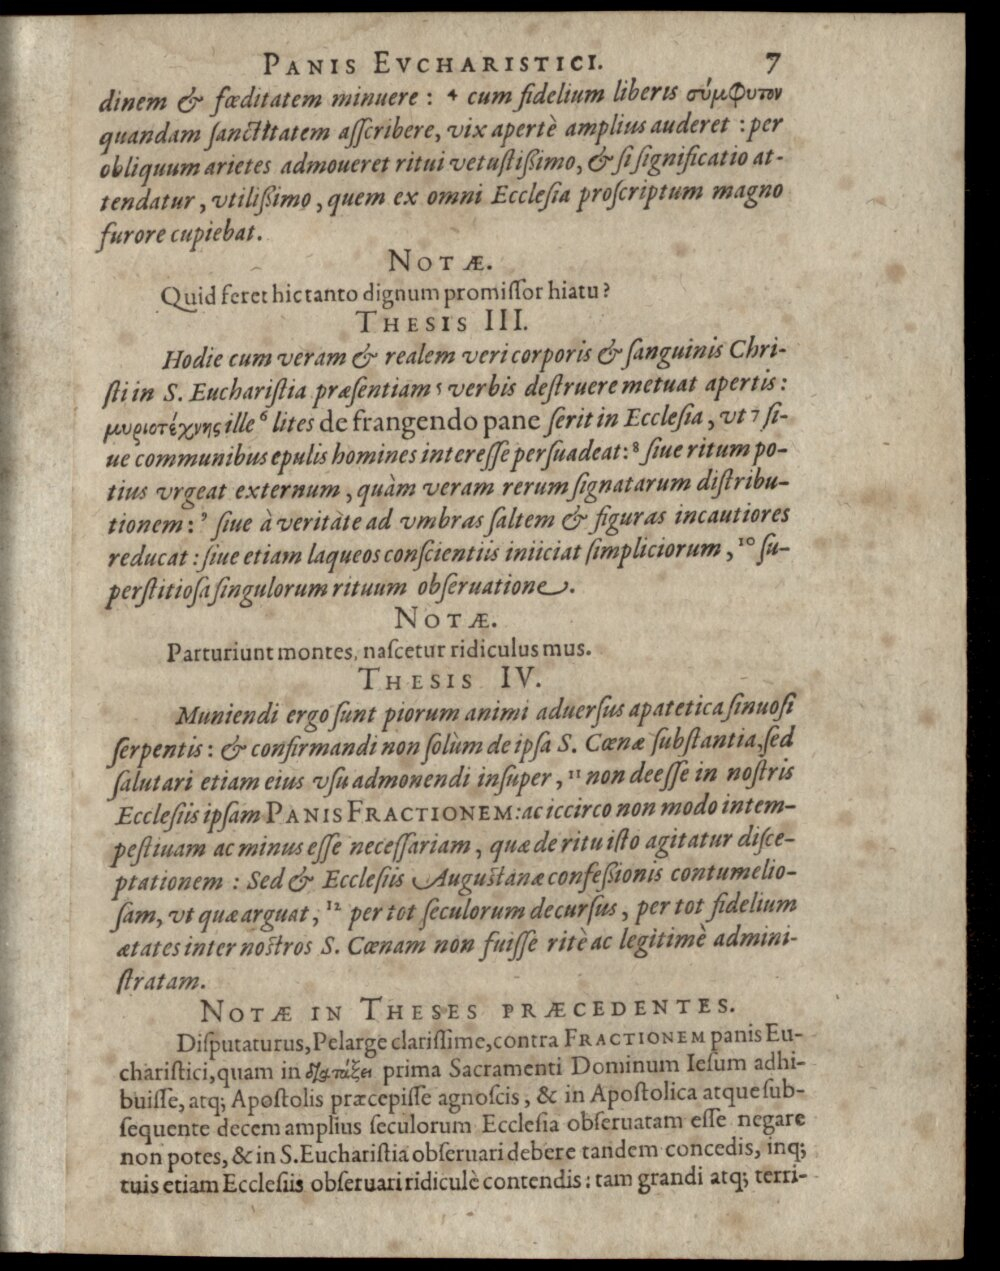 PANIS EVCHARISTICI. 7
dinem & fœditatem minuere : 4 cum fidelium liberis σύμφυτον
quandam ſanctitatem aſſcribere, vix apertè amplius auderet : per
obliquum arietes admoueret ritui vetuſtißimo, & ſi ſignificatio at-
tendatur, vtilißimo, quem ex omni Eccleſia proſcriptum magno
furore cupiebat.
NOTÆ.
Quid feret hic tanto dignum promiſſor hiatu?
THESIS III.
Hodie cum veram & realem veri corporis & ſanguinis Chri-
ſti in S. Euchariſtia præſentiam 5 verbis deſtruere metuat apertis:
μυριοτέχνης ille 6 lites de frangendo pane ſerit in Eccleſia, vt 7 ſi-
ue communibus epulis homines intereſſe perſuadeat: 8 ſiue ritum po-
tius vrgeat externum, quàm veram rerum ſignatarum diſtribu-
tionem: 9 ſiue à veritate ad vmbras ſaltem & figuras incautiores
reducat : ſiue etiam laqueos conſcientiis iniiciat ſimpliciorum, 10 ſu-
perſtitioſa ſingulorum rituum obſeruatione.
NOTÆ.
Parturiunt montes, naſcetur ridiculus mus.
THESIS IV.
Muniendi ergo ſunt piorum animi aduerſus apatetica ſinuoſi
ſerpentis : & confirmandi non ſolùm de ipſa S. Cœnæ ſubſtantia, ſed
ſalutari etiam eius vſu admonendi inſuper, 11 non deeſſe in noſtris
Eccleſiis ipſam PANIS FRACTIONEM: ac iccirco non modo intem-
peſtiuam ac minus eſſe neceſſariam, quæ de ritu iſto agitatur diſce-
ptationem : Sed & Eccleſiis Auguſtanæ confeßionis contumelio-
ſam, vt quæ arguat, 12 per tot ſeculorum decurſus, per tot fidelium
ætates inter noſtros S. Cœnam non fuiſſe ritè ac legitimè admini-
ſtratam.
NOTÆ IN THESES PRÆCEDENTES.
Diſputaturus, Pelarge clariſſime, contra FRACTIONEM panis Eu-
chariſtici, quam in διατάξει prima Sacramenti Dominum Ieſum adhi-
buiſſe, atq; Apoſtolis præcepiſſe agnoſcis, & in Apoſtolica atque ſub-
ſequente decem amplius ſeculorum Eccleſia obſeruatam eſſe negare
non potes, & in S. Euchariſtia obſeruari debere tandem concedis, inq;
tuis etiam Eccleſiis obſeruari ridiculè contendis : tam grandi atq; terri-